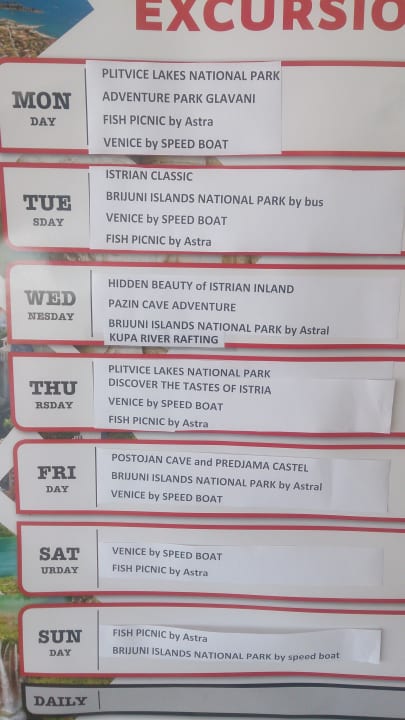 EXCURSIO
MON
DAY
PLITVICE LAKES NATIONAL PARK
ADVENTURE PARK GLAVANI
FISH PICNIC by Astra
VENICE by SPEED BOAT
TUE
SDAY
ISTRIAN CLASSIC
BRIJUNI ISLANDS NATIONAL PARK by bus
VENICE by SPEED BOAT
FISH PICNIC by Astra
WED
NESDAY
HIDDEN BEAUTY of ISTRIAN INLAND
PAZIN CAVE ADVENTURE
BRIJUNI ISLANDS NATIONAL PARK by Astral
KUPA RIVER RAFTING
THU
RSDAY
PLITVICE LAKES NATIONAL PARK
DISCOVER THE TASTES OF ISTRIA
VENICE by SPEED BOAT
FISH PICNIC by Astra
FRI
DAY
POSTOJAN CAVE and PREDJAMA CASTEL
BRIJUNI ISLANDS NATIONAL PARK by Astral
VENICE by SPEED BOAT
SAT
URDAY
VENICE by SPEED BOAT
FISH PICNIC by Astra
SUN
DAY
FISH PICNIC by Astra
BRIJUNI ISLANDS NATIONAL PARK by speed boat
DAILY